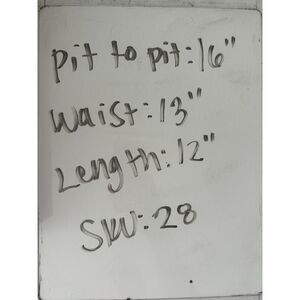 pit to pit: 16"
Waist: 13"
Length: 12"
SKU: 28